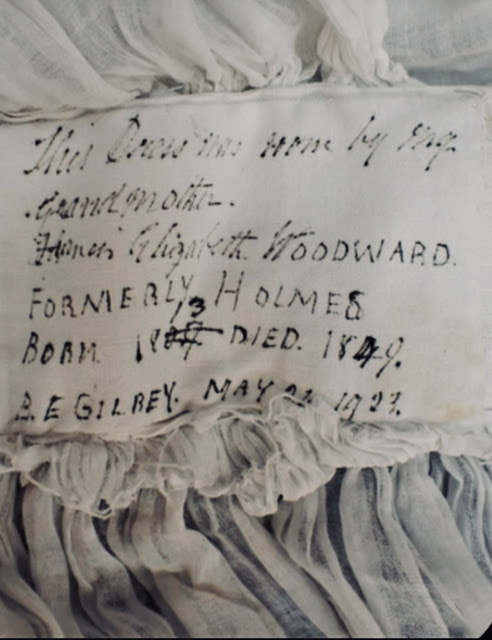 This Dress was worn by my
grandmother.
Francis Elizabeth WOODWARD.
FORMERLY HOLMES
BORN 1813 DIED. 1849.
B. E GILBEY. MAY 21 1923.